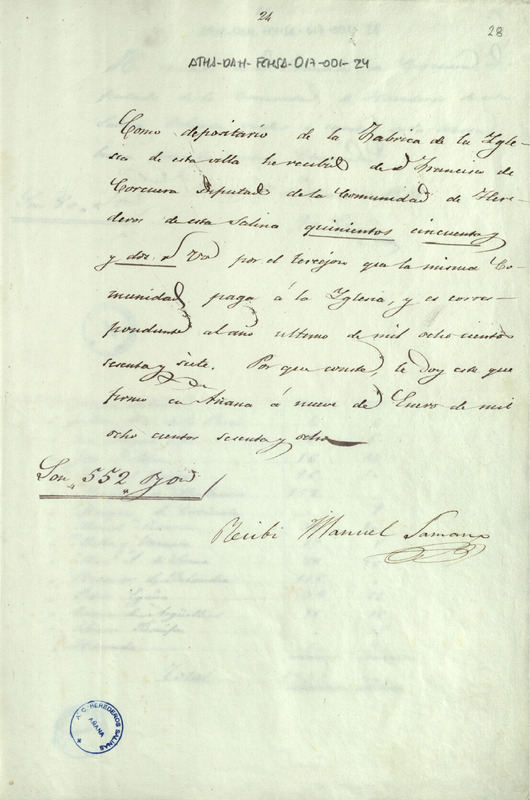 24
28
ATHA-DAH-FCHSA-017-001-24
Como depositario de la Fabrica de la Ygle-
sia de esta villa he recibido de dn Francisco de
Corcuera Diputado de la Comunidad de Here-
deros de esta Salina quinientos cincuenta y
y dos rs von por el tercejon que la misma Co-
munidad paga á la Yglesia, y es corres-
pondiente al año ultimo de mil ocho cientos
sesenta y siete. Por que conste, le doy este que
firmo en Añana á nueve de Enero de mil
ocho cientos sesenta y ocho
Son 552 rs von
Recibi Manuel Samano
A. C. HEREDEROS SALINAS
AÑANA